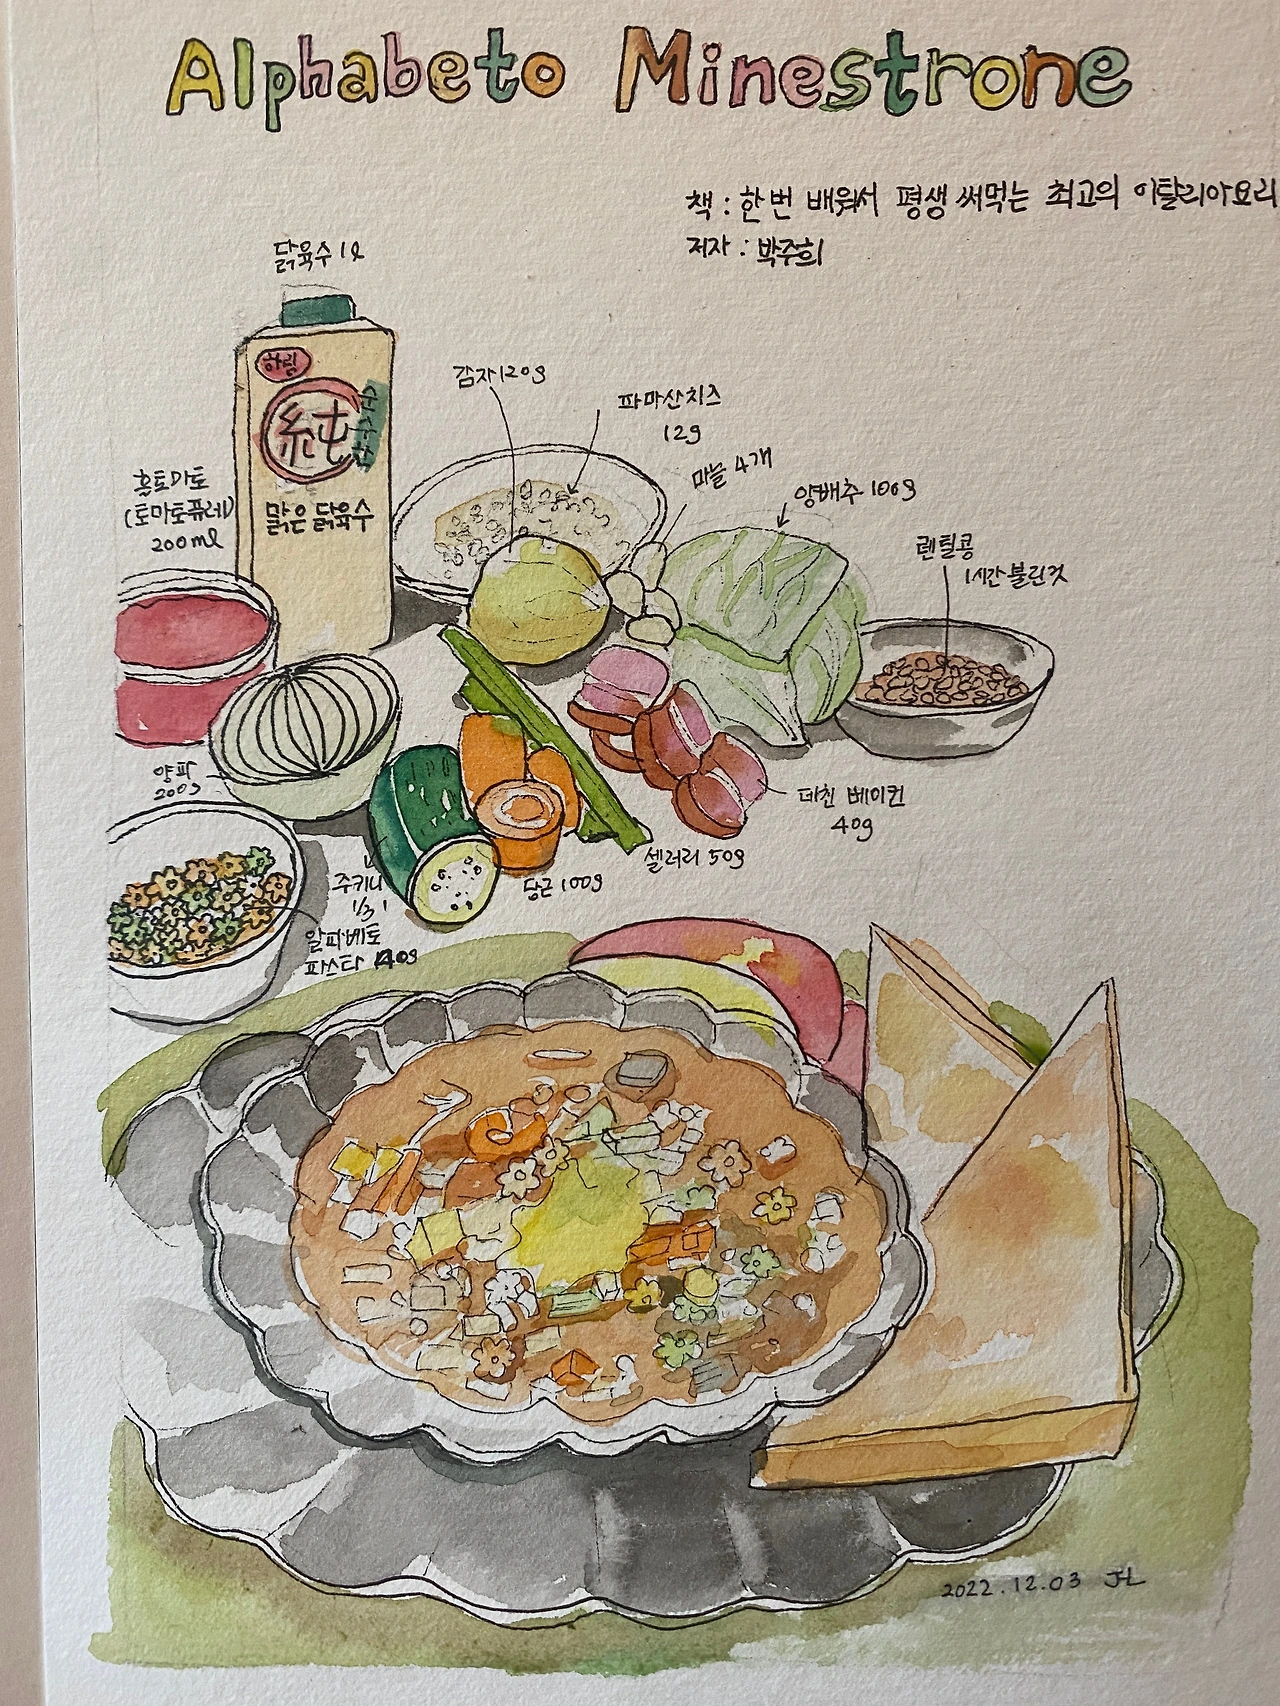 Alphabeto Minestrone
책 : 한번 배워서 평생 써먹는 최고의 이탈리아요리
저자 : 박주희
닭육수 1ℓ
하림
純
순수한
맑은 닭육수
감자 120g
파마산치즈
12g
마늘 4개
양배추 100g
렌틸콩
1시간 불린것
홀토마토
(토마토퓨레)
200ml
양파
200g
데친 베이컨
40g
셀러리 50g
당근 100g
주키니
1/3
알파베토
파스타 140g
2022.12.03 JHL